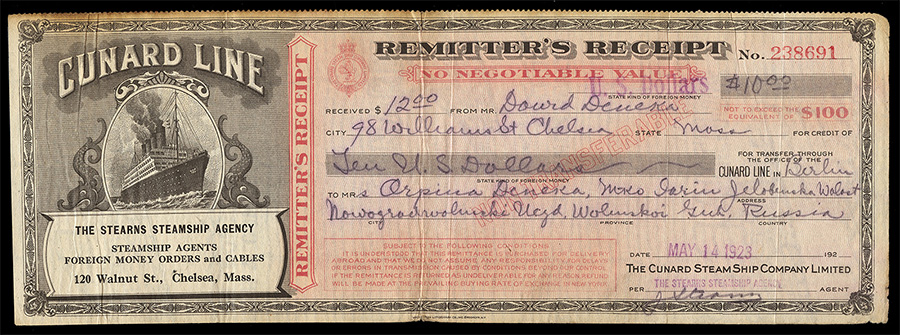 CUNARD LINE
THE STEARNS STEAMSHIP AGENCY
STEAMSHIP AGENTS
FOREIGN MONEY ORDERS and CABLES
120 Walnut St., Chelsea, Mass.
REMITTER'S RECEIPT
REMITTER'S RECEIPT No. 238691
NO NEGOTIABLE VALUE
U. S. Dollars $10.00
STATE KIND OF FOREIGN MONEY
NOT TO EXCEED THE EQUIVALENT OF $100
RECEIVED $ 12.00 FROM MR. Dawid Deneka
CITY 98 Williams St Chelsea STATE Mass FOR CREDIT OF
Ten U. S Dollars
STATE KIND OF FOREIGN MONEY
FOR TRANSFER THROUGH
THE OFFICE OF THE
CUNARD LINE IN Berlin
NOT TRANSFERABLE
TO MRs Orpina Deneka,
ADDRESS
Russia
CITY PROVINCE COUNTRY
SUBJECT TO THE FOLLOWING CONDITIONS
IT IS UNDERSTOOD THAT THIS REMITTANCE IS PURCHASED FOR DELIVERY
ABROAD AND THAT WE WILL NOT ASSUME ANY RESPONSIBILITY FOR DELAYS
OR ERRORS IN TRANSMISSION CAUSED BY CONDITIONS BEYOND OUR CONTROL
IF THE REMITTANCE IS RETURNED AS UNDELIVERABLE FOR ANY REASON REFUND
WILL BE MADE AT THE PREVAILING BUYING RATE OF EXCHANGE IN NEW YORK.
DATE MAY 14 1923 192
THE CUNARD STEAM SHIP COMPANY LIMITED
PER THE STEARNS STEAMSHIP AGENCY AGENT